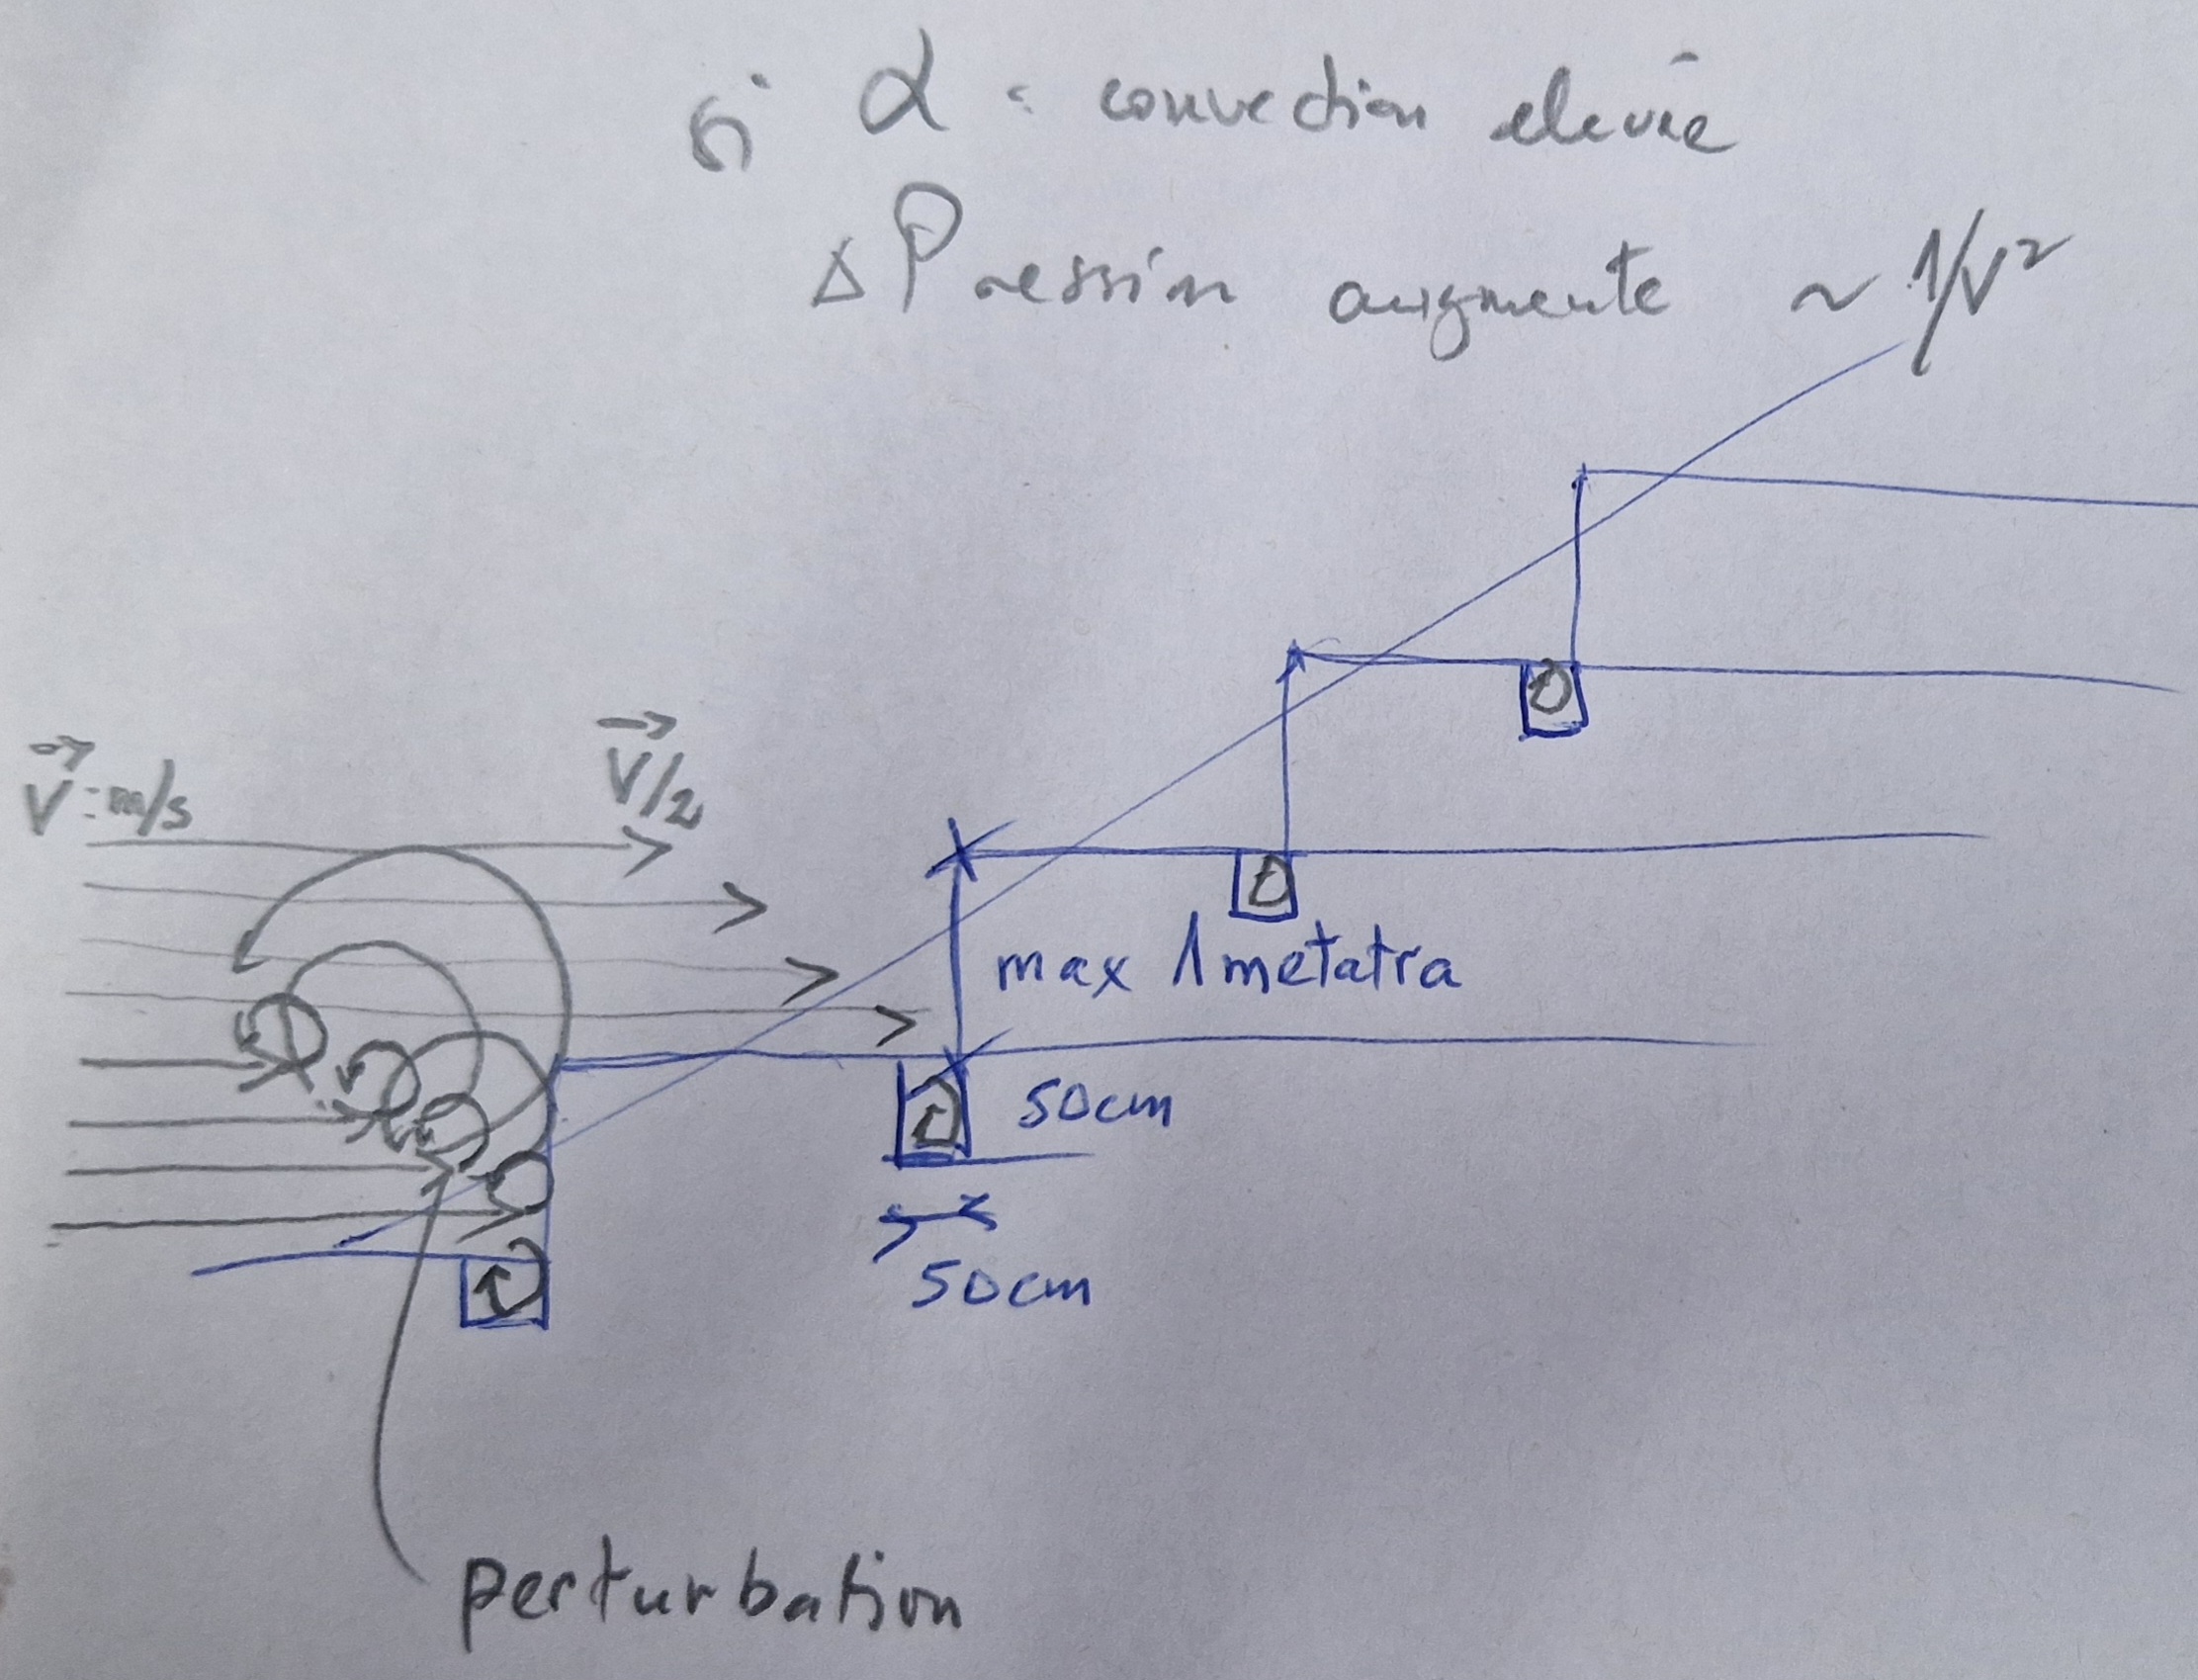 si α = convection elevée
Δ Pression augmente ~ 1/V²
V/2
V : m/s
max 1 metatra
50cm
50cm
perturbation